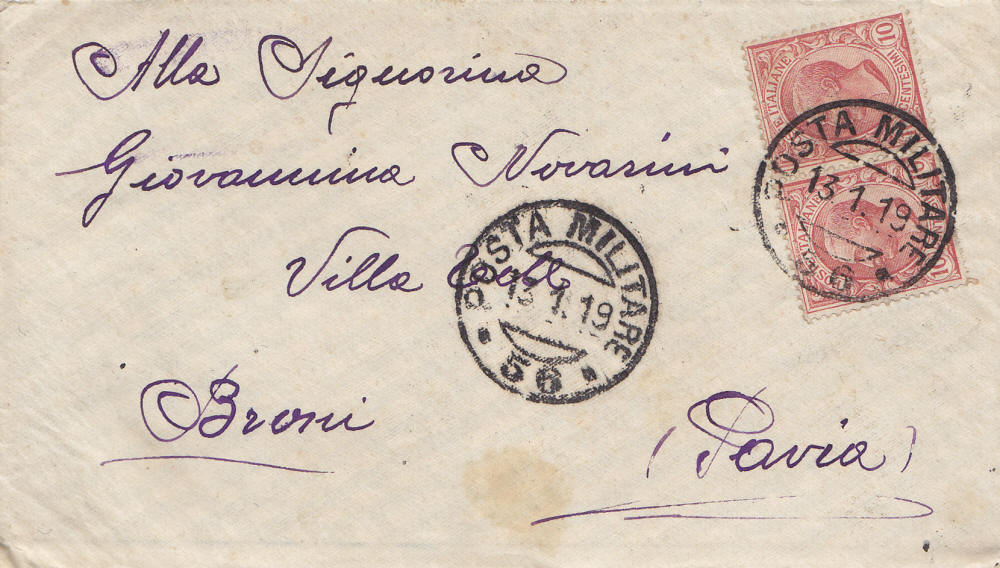 Alla Signorina
Giovannina Novarini
Villa
Broni
(Pavia)
POSTA MILITARE
13.1.19
56
POSTA MILITARE
13.1.19
6
POSTE ITALIANE
CENTESIMI 10
POSTE ITALIANE
10